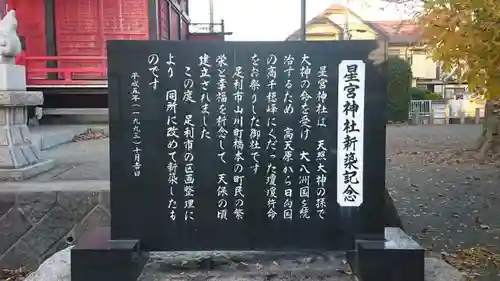 星宮神社新築記念
星宮神社は 天照大神の孫で
大神の命を受け 大八洲国を統
治するため 高天原から日向国
の高千穂峰にくだった瓊瓊杵命
をお祭りした御社です
足利市山川町橋本の町民の繁
栄と幸福を祈念して 天保の頃
建立されました
この度 足利市の区画整理に
より 同所に改めて新築したも
のです
平成五年(一九九三)十月吉日